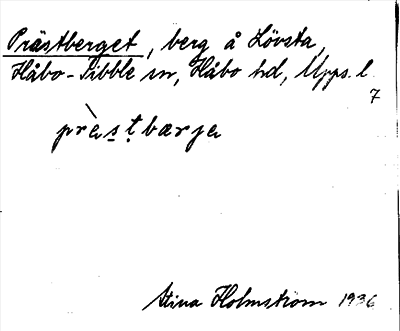 Prästberget, berg å Lövsta,
Håbo-Tibble sn, Håbo hd, Upps. l.
7
prà̀stbærja
Stina Holmström 1936